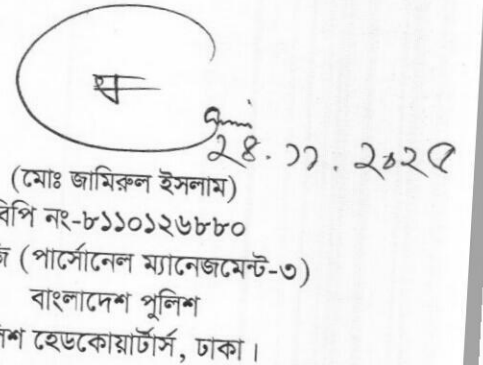 ২৪.১১.২০২৫
(মোঃ জামিরুল ইসলাম)
বিপি নং-৮১১০১২৬৮৮০
(পার্সোনেল ম্যানেজমেন্ট-৩)
বাংলাদেশ পুলিশ
হেডকোয়ার্টার্স, ঢাকা।